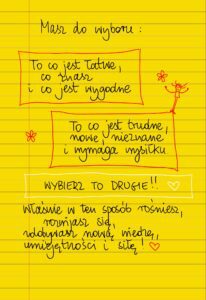 Masz do wyboru:
To co jest łatwe,
co znasz
i co jest wygodne
To co jest trudne,
nowe, nieznane
i wymaga wysiłku
WYBIERZ TO DRUGIE!!
Właśnie w ten sposób rośniesz,
rozwijasz się,
zdobywasz nową wiedzę,
umiejętności i siłę!